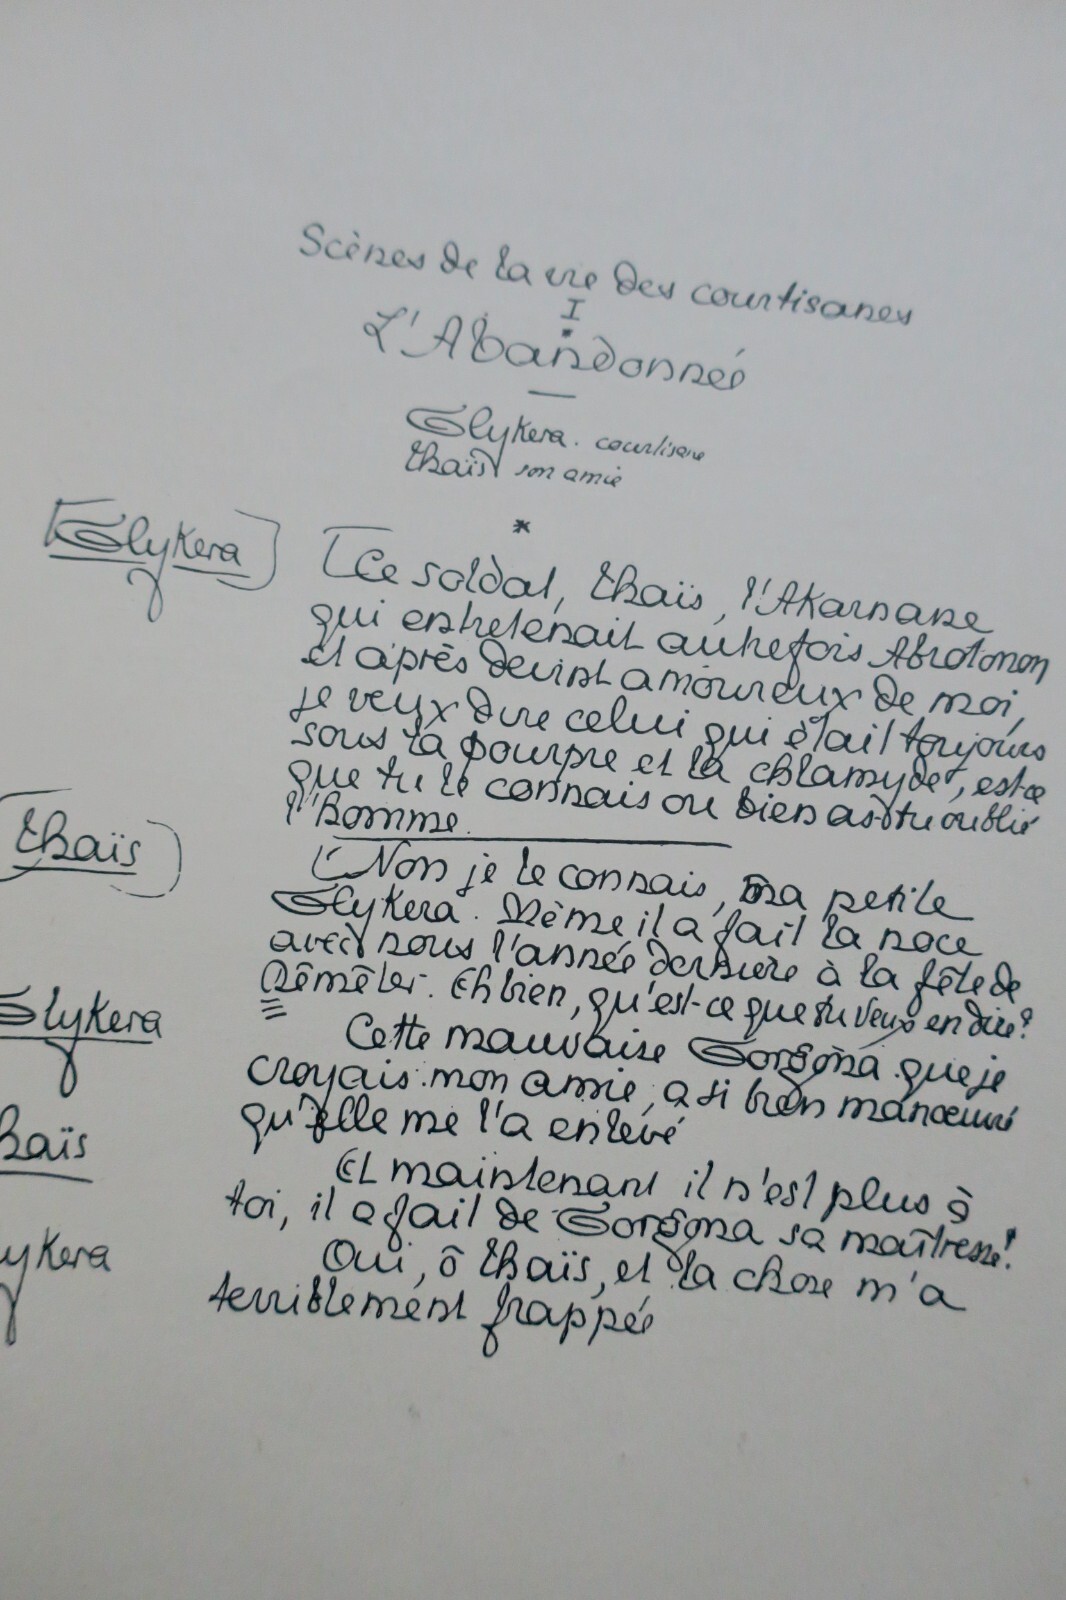 Scènes de la vie des courtisanes
I
L'Abandonnée
Glykera. courtisane
Thaïs son amie
*
Glykera
Ce soldat, Thaïs, l'Akarnane
qui entretenait autrefois Abrotonon
et après devint amoureux de moi,
je veux dire celui qui était toujours
sous la pourpre et la chlamyde, est-ce
que tu le connais ou bien as-tu oublié
l'homme.
Thaïs
Non je le connais, ma petite
Glykera. Même il a fait la noce
avec nous l'année dernière à la fête de
Dêmêter. Eh bien, qu'est-ce que tu veux en dire?
Glykera
Cette mauvaise Gorgona que je
croyais mon amie, a si bien manœuvré
qu'elle me l'a enlevé
haïs
Et maintenant il n'est plus à
toi, il a fait de Gorgona sa maîtresse!
ykera
Oui, ô Thaïs, et la chose m'a
terriblement frappée